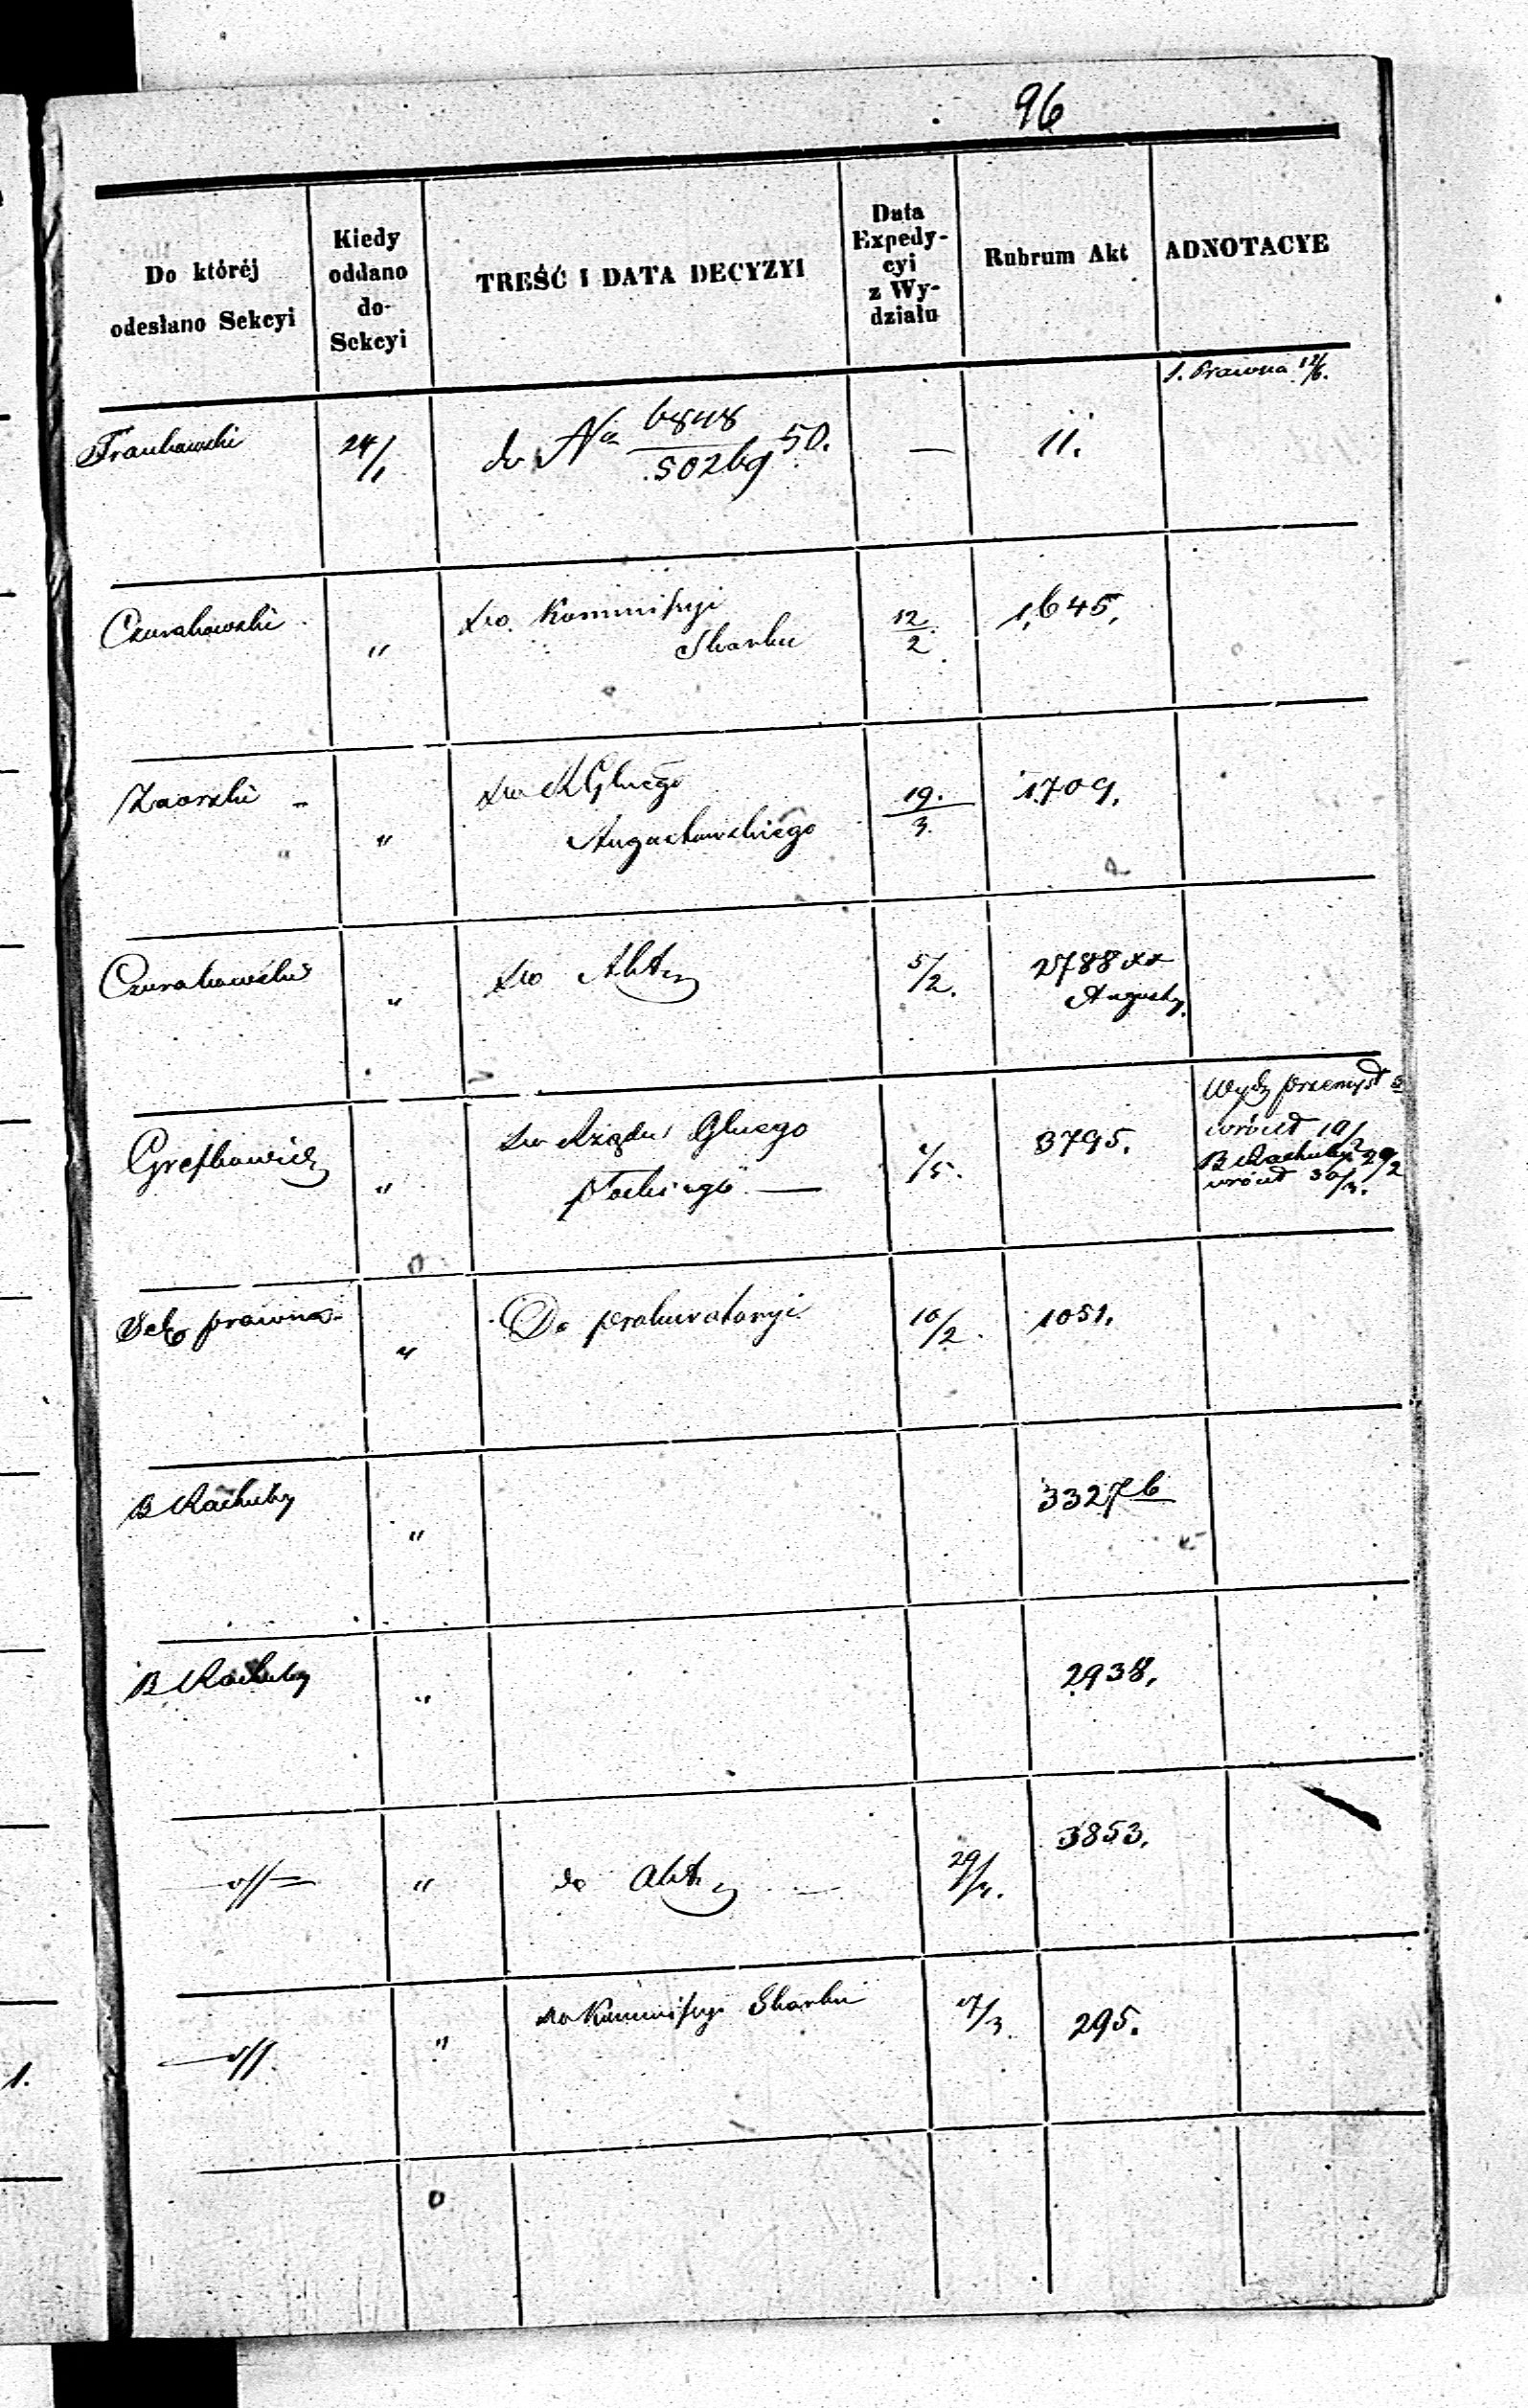 96
Do któréj
odesłano Sekcyi
Kiedy
oddano
do-
Sekcyi
TREŚĆ I DATA DECYZYI
Data
Expedy-
cyi
z Wy-
działu
Rubrum Akt
ADNOTACYE
S. Prawna 12/6.
24/1
do Na 6848/50269 50.
—
11.
Czurakowski
"
do Kommissyi
Skarbu
12/2
1,645,
Zaorski -
"
do
Augustowskiego
19./3.
1709,
Czurakowski
"
do Akt
5/2.
2788 xx
Augusty.
"
do Rządu Glnego
Płockiego —
1/5.
3795.
Wydz przemysł
wrócił 19/2
B Rachuby 29/2
wrócił 30/3.
Sek prawna
"
Do prokuratoryi
10/2.
1051.
B Rachuby
"
3327b
B Rachuby
"
2938,
"
do Akt
29/3.
3853,
"
do Kommissyi Skarbu
17/3.
295.
1.